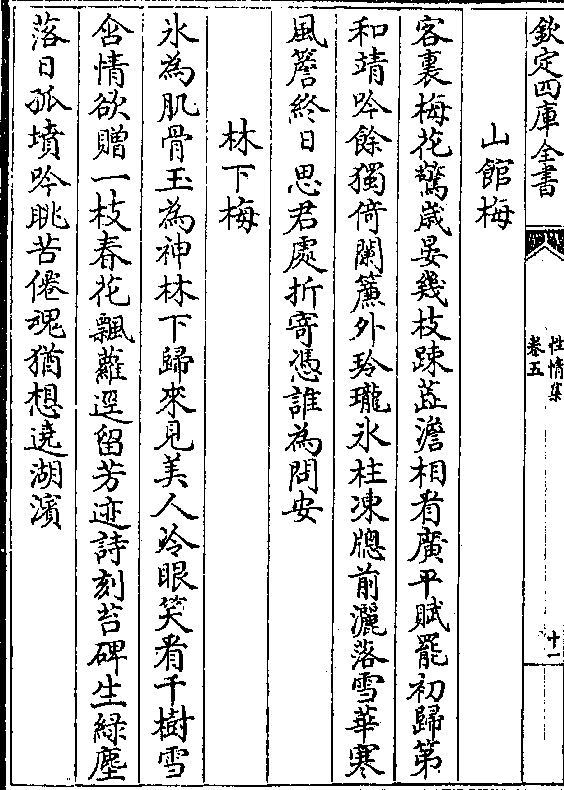 欽定四庫全書
性情集
卷五
十一
山館梅
客裏梅花驚歳晏幾枝踈蘂澹相看廣平賦罷初歸第
和靖吟餘獨倚闌簾外玲瓏氷柱凍牕前灑落雪華寒
風簷終日思君處折寄憑誰為問安
林下梅
氷為肌骨玉為神林下歸來見美人冷眼笑看千樹雪
含情欲贈一枝春花飄蘿逕留芳迹詩刻苔碑生緑塵
落日孤墳吟眺苦倦魂猶想遶湖濱